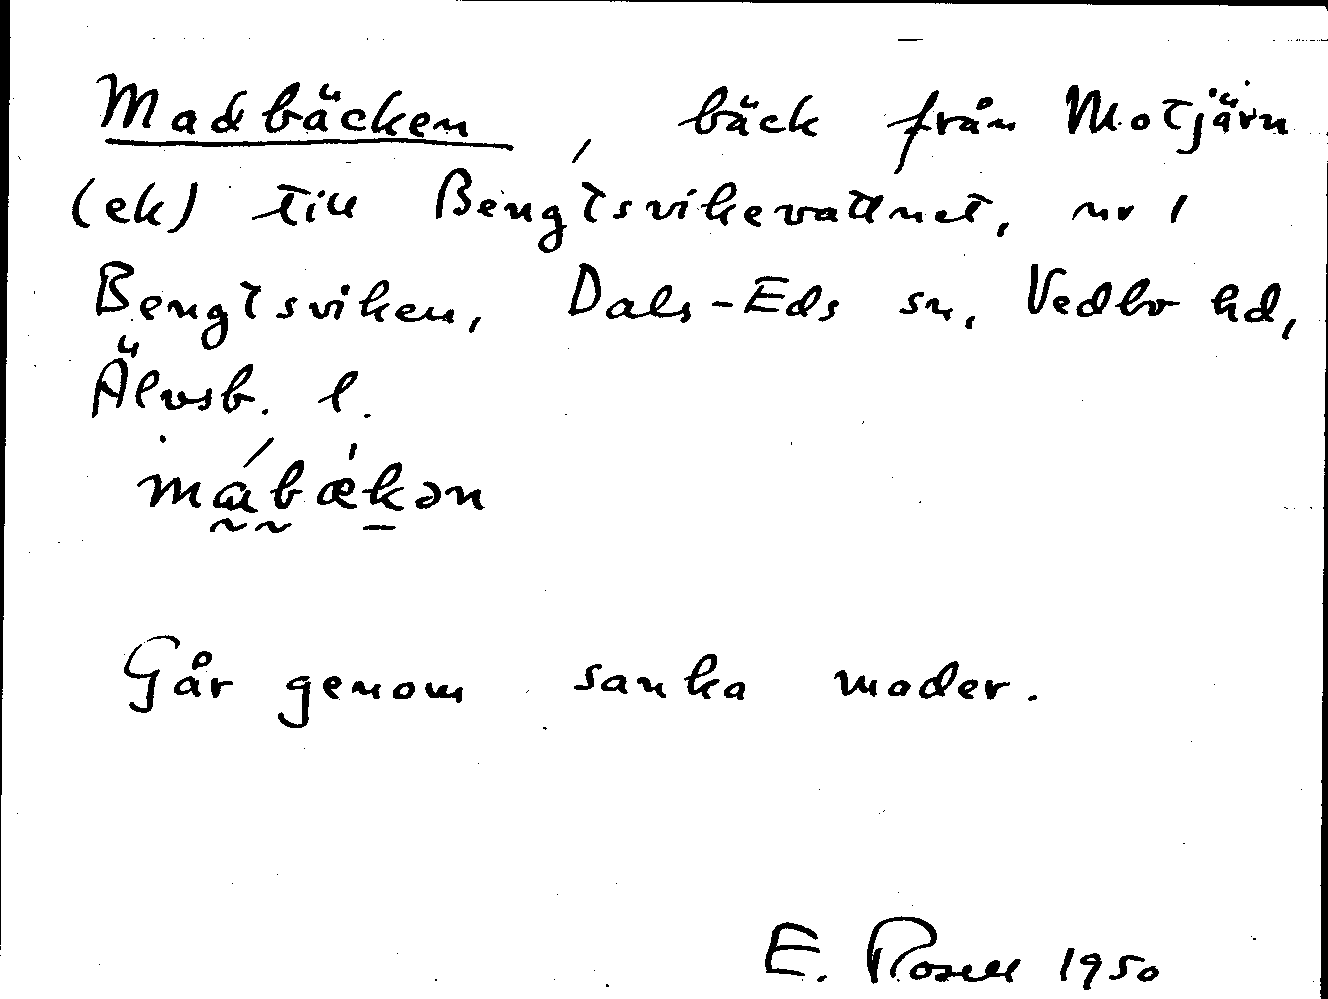 Madbäcken, bäck från Motjärn
(ek) till Bengtsvikevattnet, nr 1
Bengtsviken, Dals-Eds sn, Vedbo hd,
Älvsb. l.
mábækən
Går genom sanka mader.
E. Rosell 1950